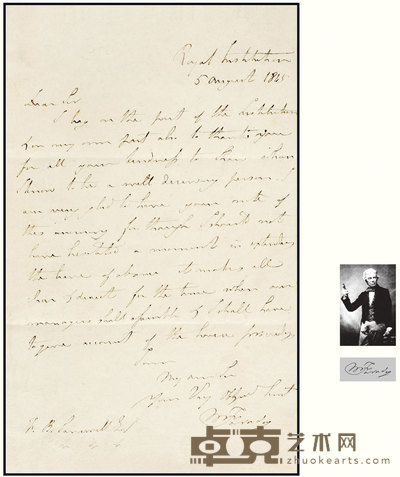 Royal Institution
5 August 1845
Dear Sir
I beg on the part of the Institution
& on my own part also to thank you
for all your kindness to
I know to be a well deserving person. I
am very glad to have your note of
this morning for though I should not
have hesitated a moment in extending
the leave of absence it makes all
clear & direct for the time when our
managers shall assemble & I shall have
to give account of the
I am
My dear Sir
Your Very Obliged Servt
M Faraday
Esq
M Faraday
卓克艺术网
www.zhuokearts.com